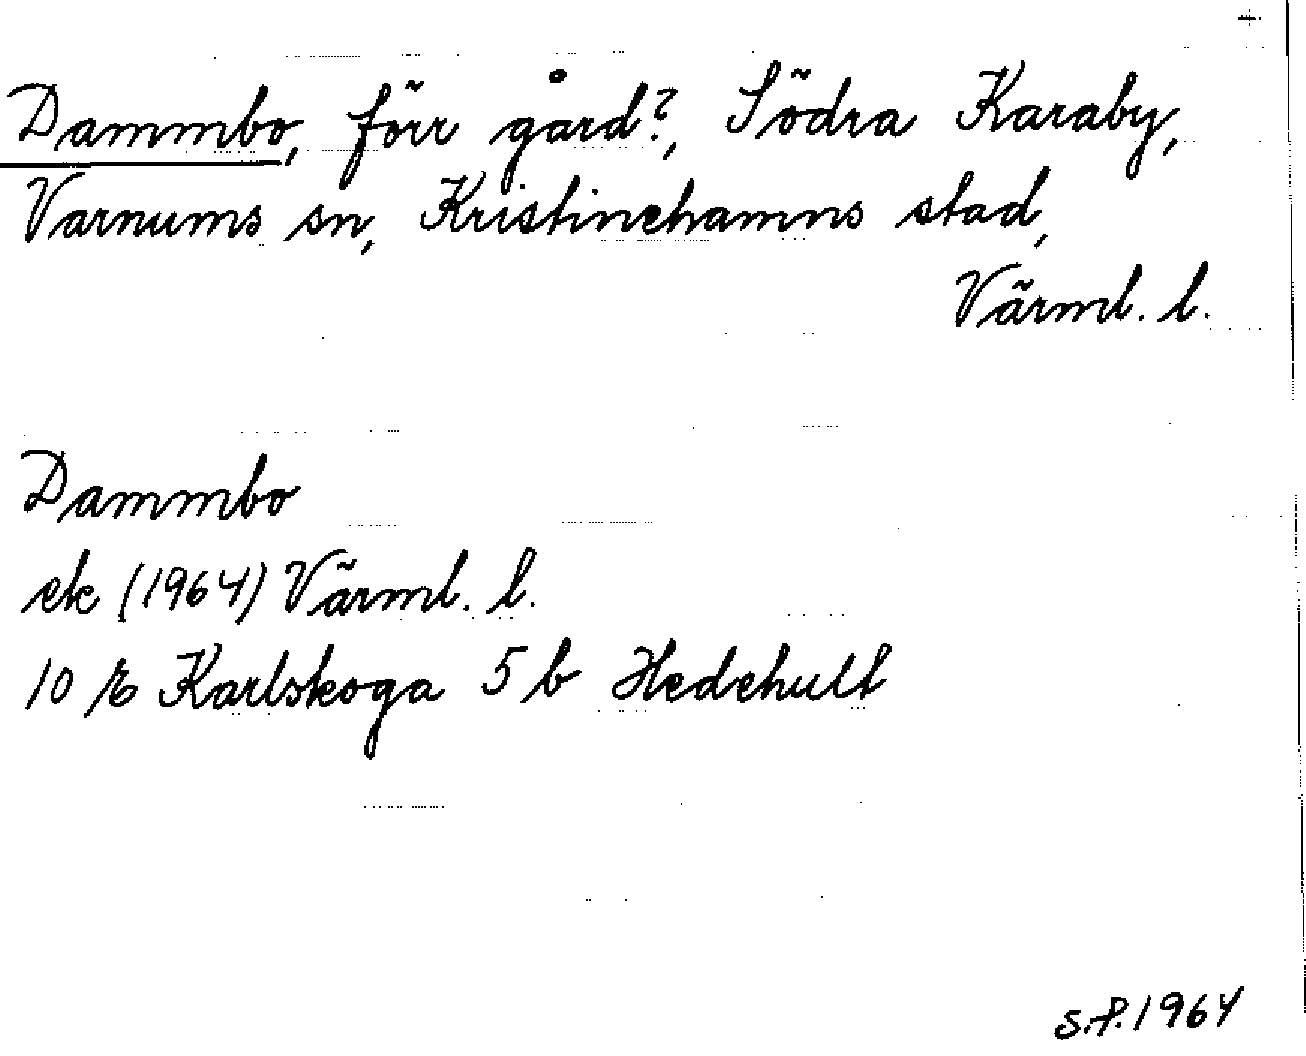 Dammbo, förr gård?, Södra Karaby,
Varnums sn, Kristinehamns stad,
Värml. l.
Dammbo
ek (1964) Värml. l.
10 E Karlskoga 5 b Hedehult
S.P. 1964